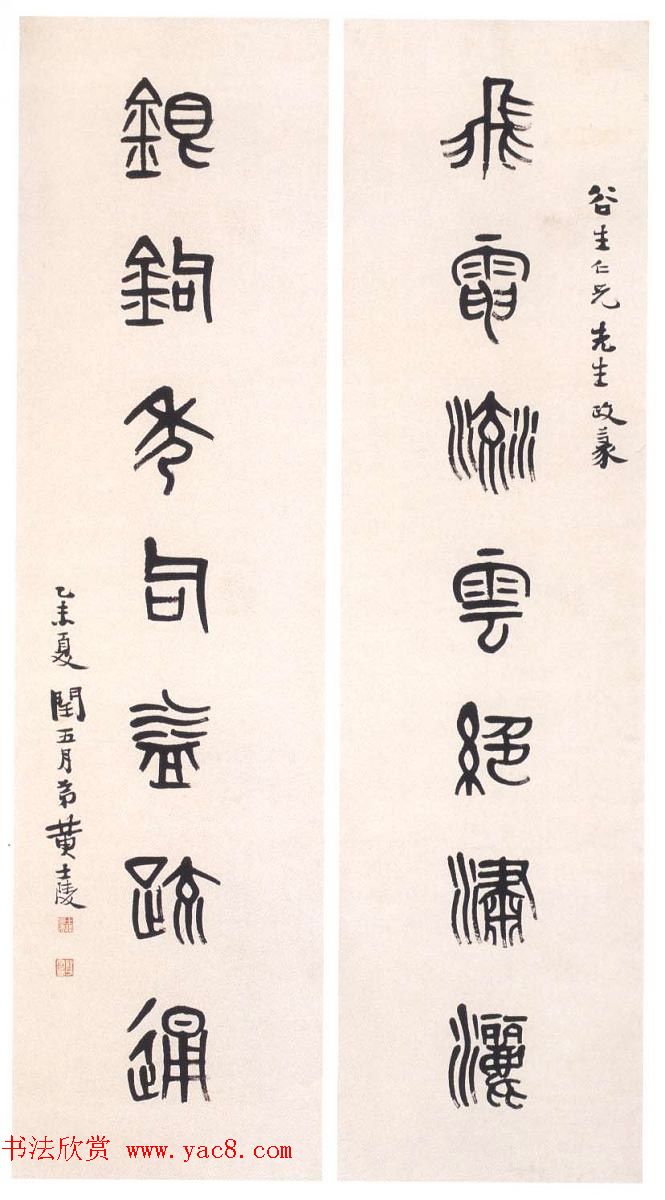 谷生仁兄先生政篆
飛電流雲絕瀟灑
銀鉤秀句益疏通
乙未夏閏五月弟黃士陵
书法欣赏 www.yac8.com